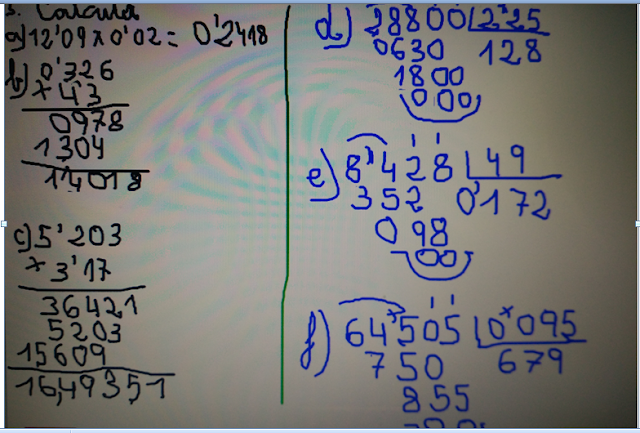 3. Calcula
a) 12'09 x 0'02 = 0'2418
b) 0'326
x 43
0978
1304
14018
c) 5'203
x 3'17
36421
5203
15609
16,49351
d) 28800 2'25
0630 128
1800
000
e) 8'428 49
352 0'172
098
00
f) 64'505 0'095
750 679
855